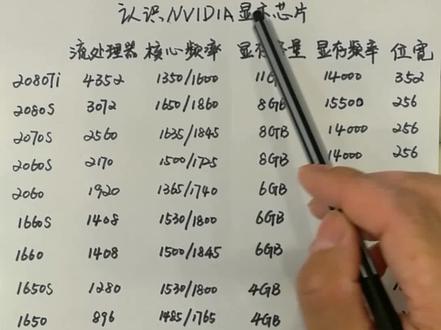 认识NVIDIA显示芯片
流处理器 核心频率 显存容量 显存频率 位宽
2080Ti 4352 1350/1600 11GB 14000 352
2080S 3072 1650/1860 8GB 15500 256
2070S 2560 1635/1845 8GB 14000 256
2060S 2170 1500/1725 8GB 14000 256
2060 1920 1365/1740 6GB
1660S 1408 1530/1800 6GB
1660 1408 1500/1845 6GB
1650S 1280 1530/1800 4GB
1650 896 1485/1765 4GB